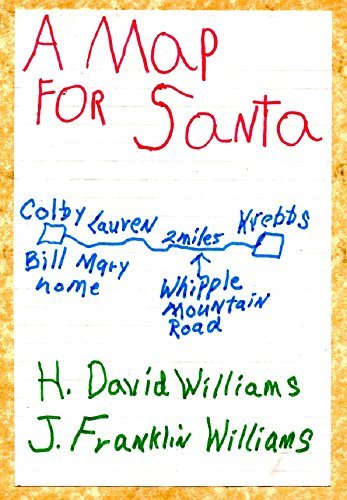 A Map
FOR Santa
Colby Lauren
2miles
Krebbs
Bill Mary
home
Whipple
MOUNTAIN
Road
H. David Williams
J. Franklin Williams